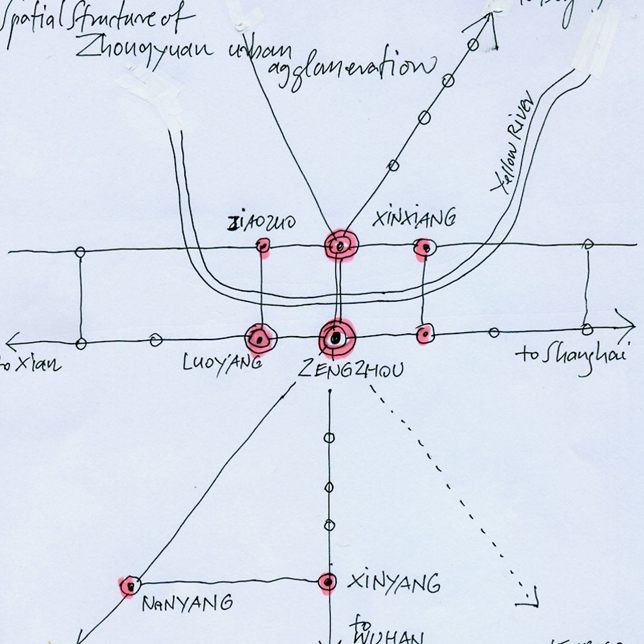 Spatial Structure of
Zhongyuan urban
agglaneration
Yellow River
ZIAOZUO
XINXIANG
to Xian
LUOYANG
ZENGZHOU
to Shanghai
NANYANG
XINYANG
to
WUHAN